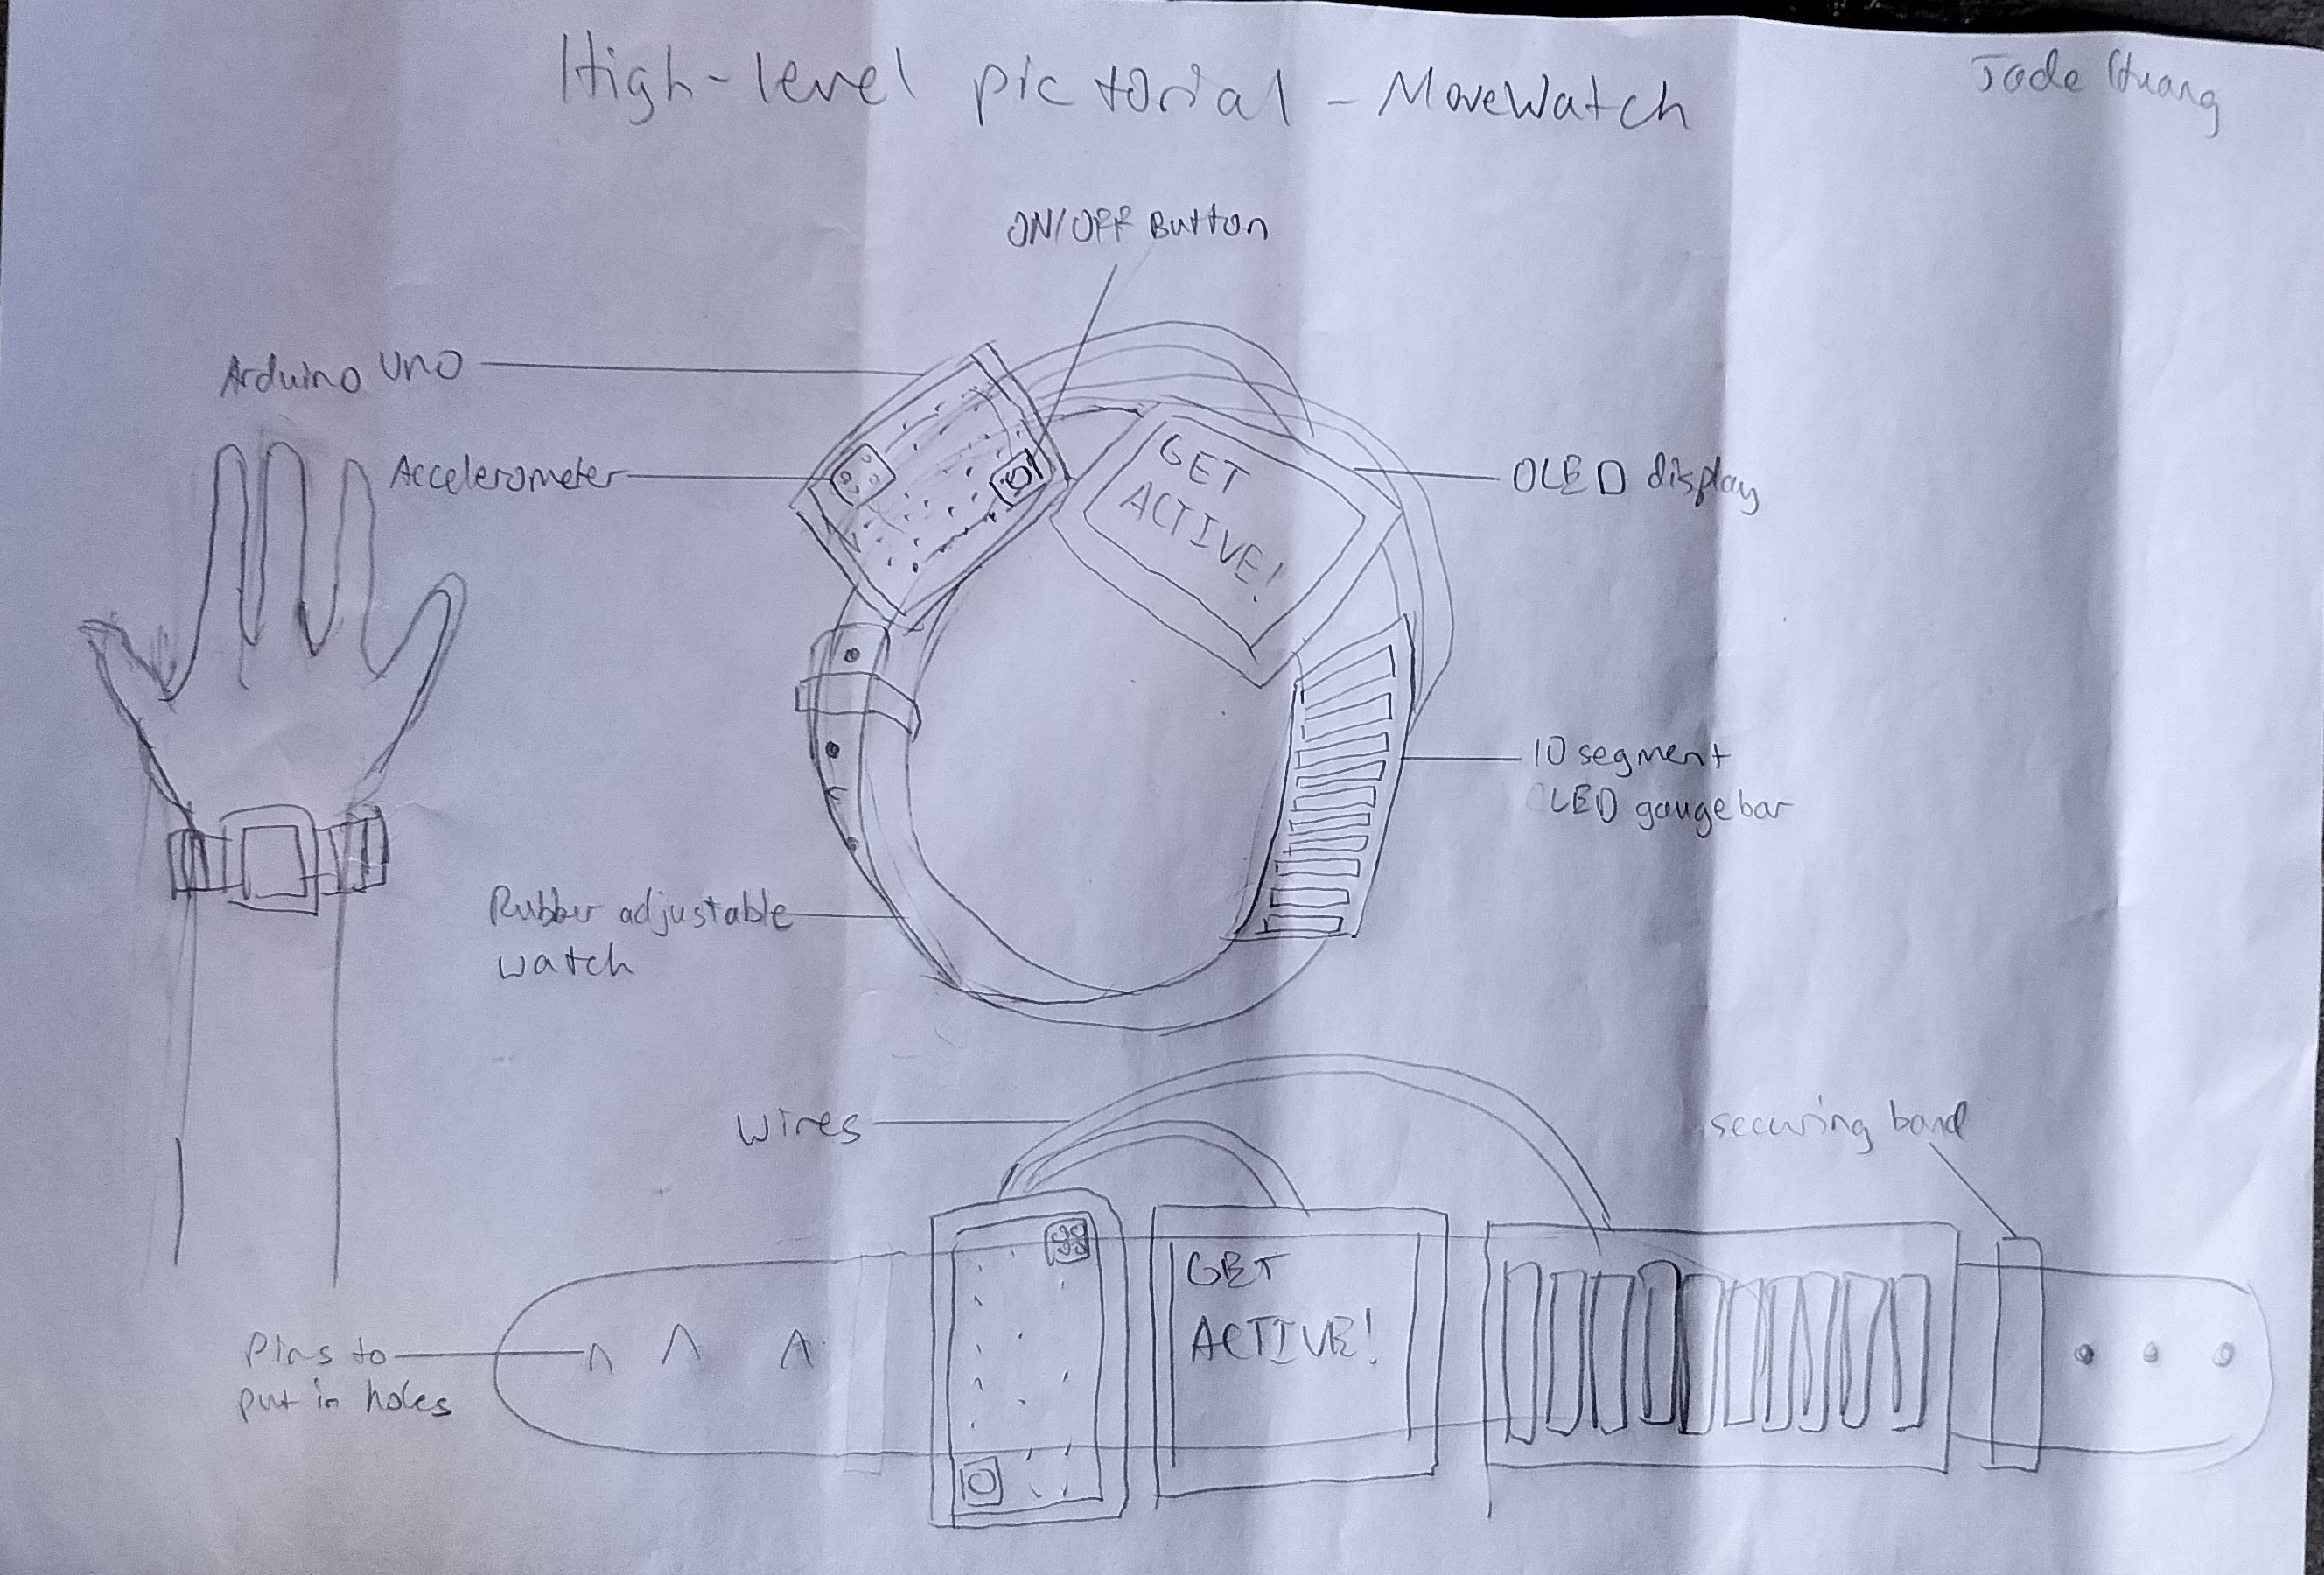 High-level pictorial - MoveWatch
Jade Huang
ON/OFF Button
Arduino Uno
Accelerometer
GET
ACTIVE!
OLED display
10 segment
LED gauge bar
Rubber adjustable
watch
Wires
securing band
GET
ACTIVE!
Pins to
put in holes